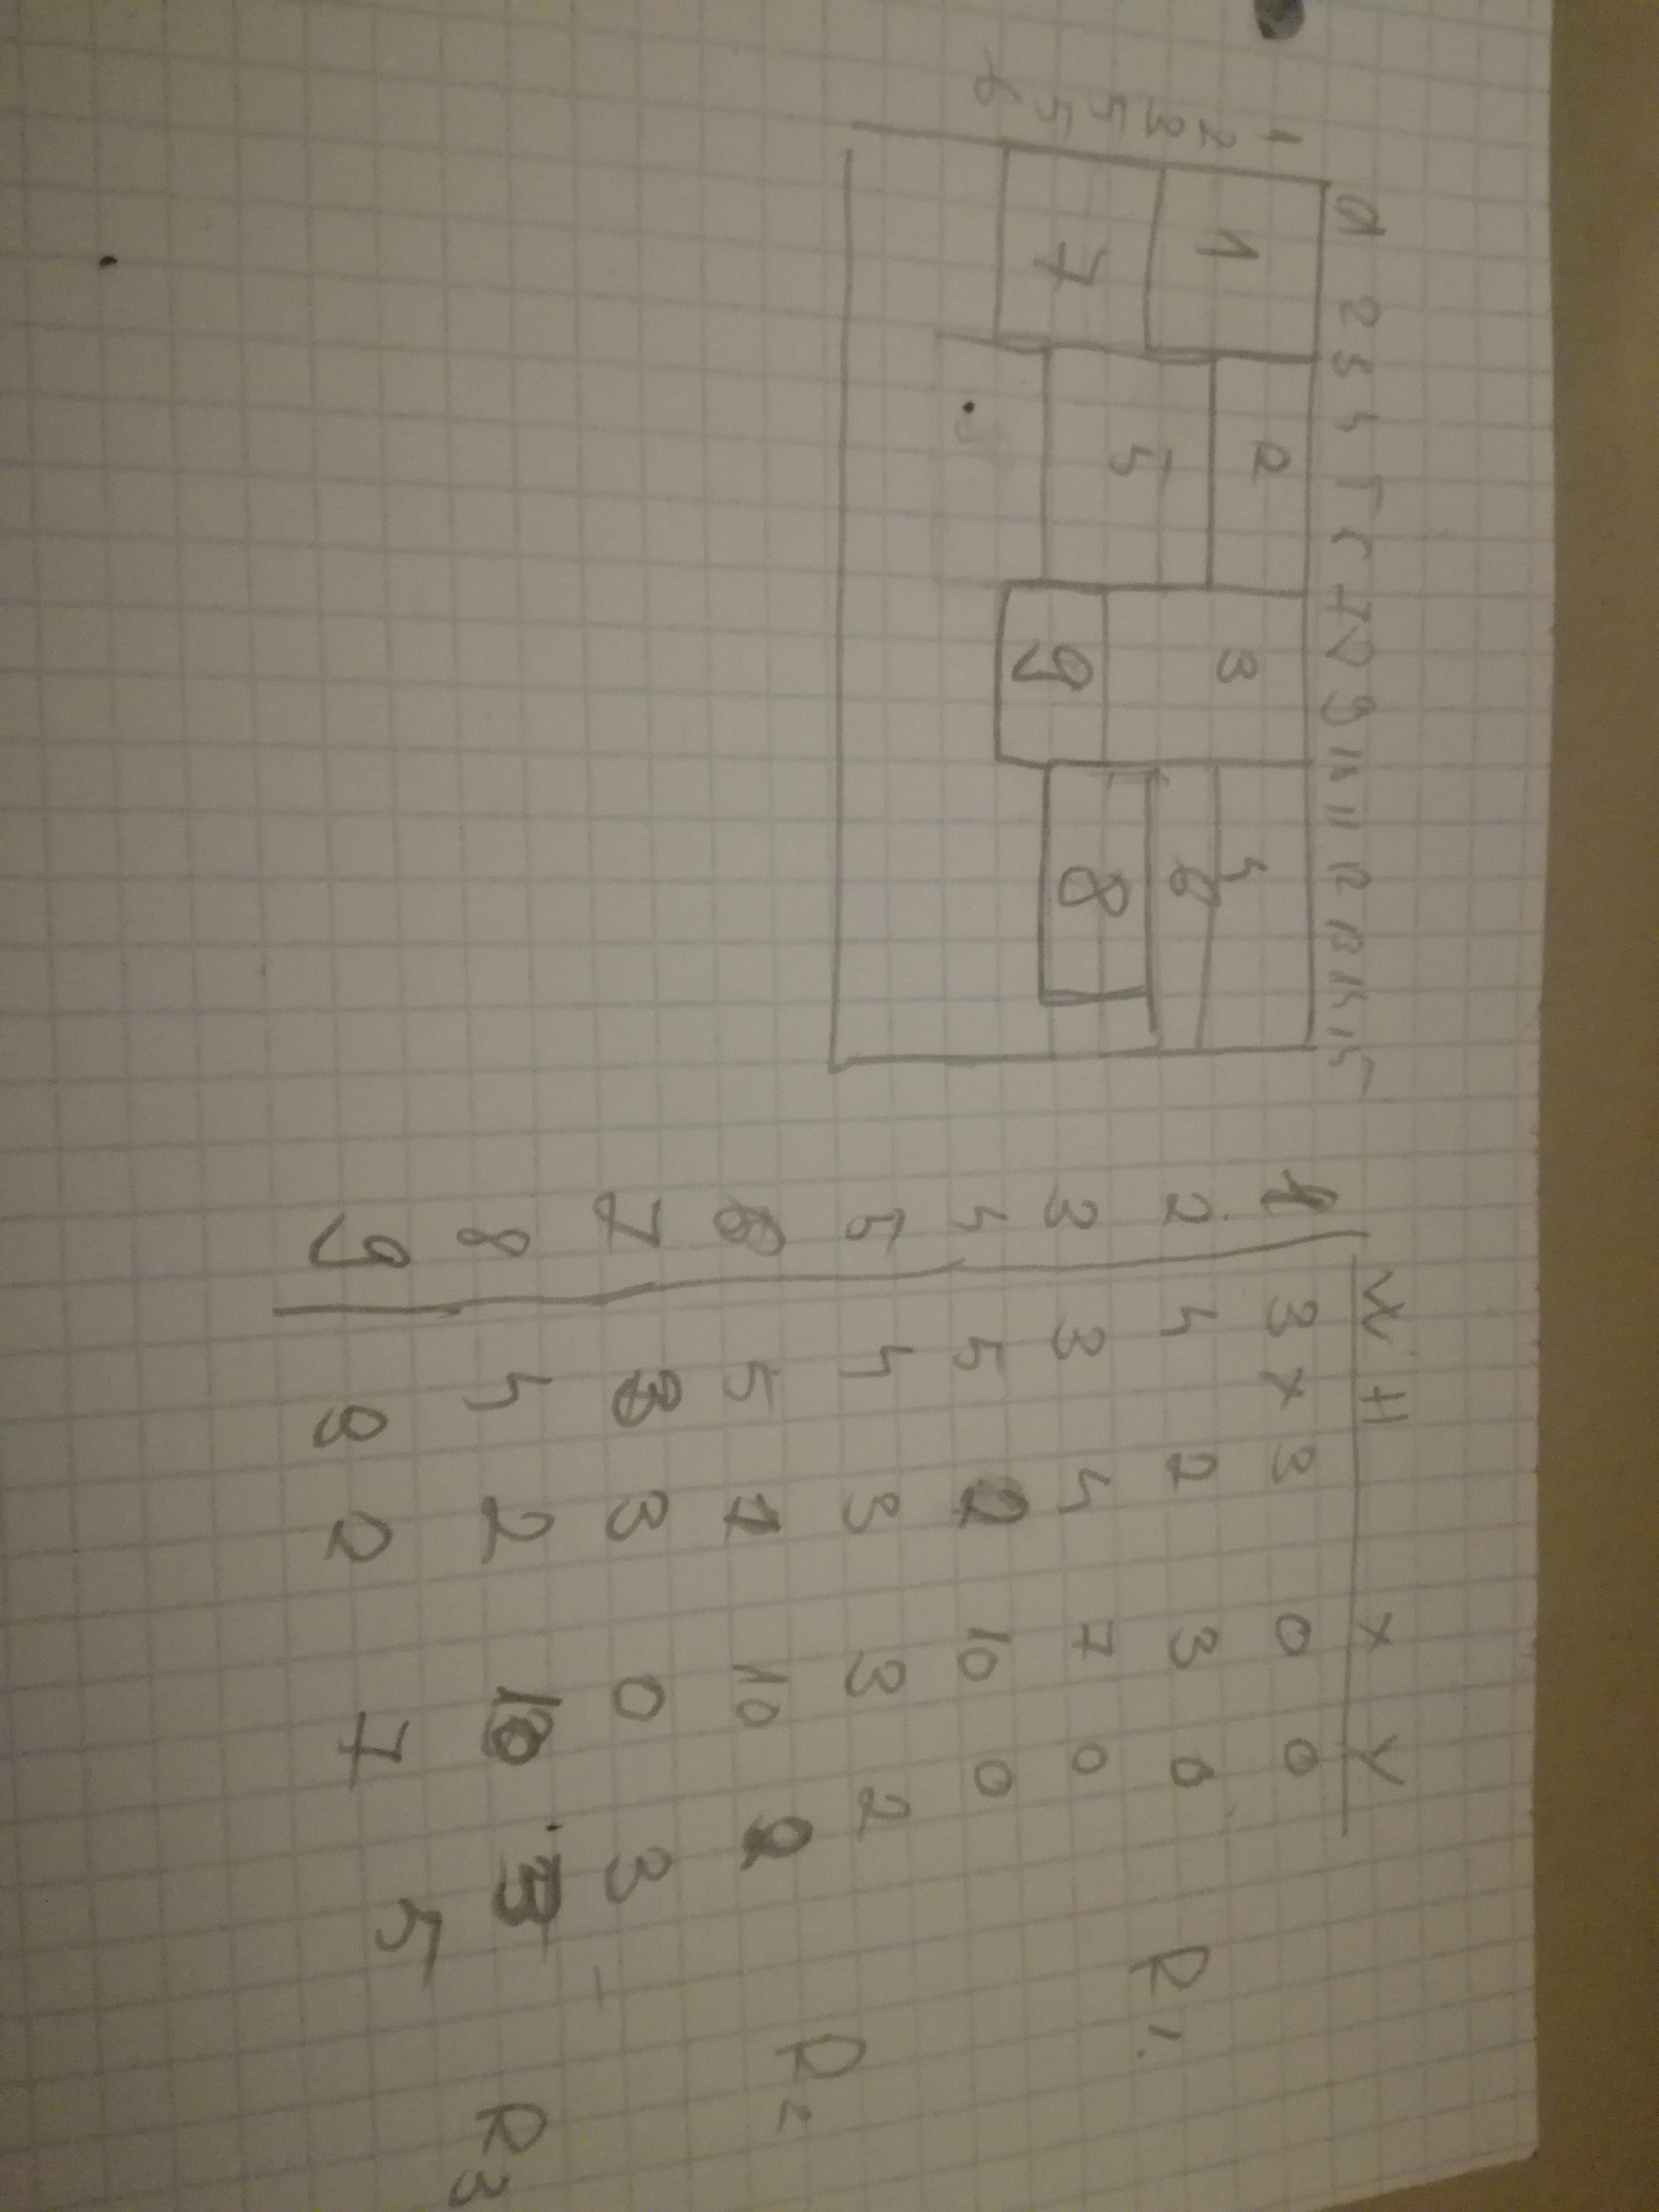 0 1 2 3 4 5 6 7 8 9 10 11 12 13 14 15
1
2
3
4
5
6
1 2 3 4
7 5 9 6
8
W H X Y
1 3 x 3 0 0
2 4 2 3 0
3 3 4 7 0 R1.
4 5 2 10 0
5 4 3 3 2
6 5 1 10 2 R2
7 3 3 0 3 -
8 4 2 10 3
9 3 2 7 5 R3